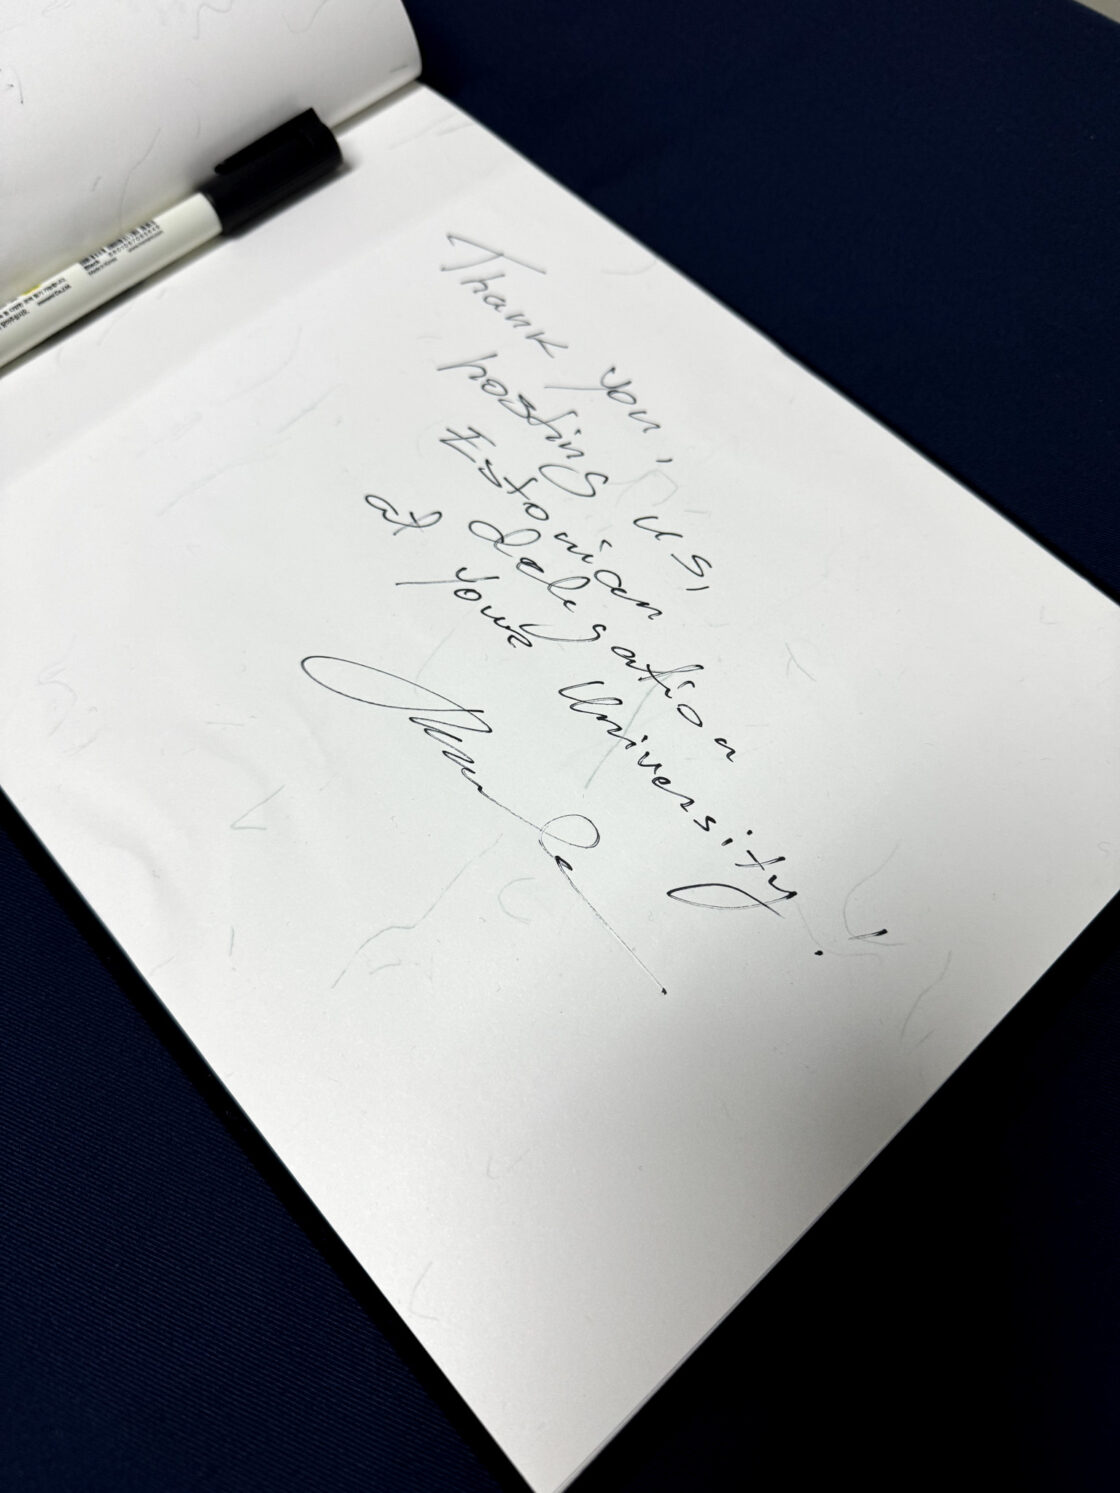 Thank you,
hosting us,
Estonian
delegation
at your University!